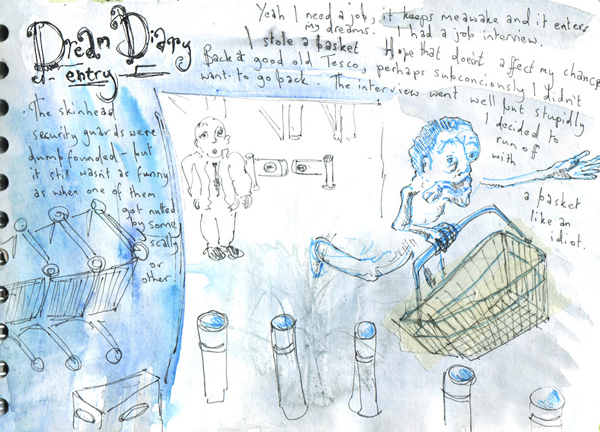 Dream Diary
entry
Yeah I need a job, it keeps me awake and it enters
my dreams. I had a job interview.
I stole a basket Hope that doesnt affect my chances
Back at good old Tesco, perhaps subconciously I didn't
want to go back. The interview went well but stupidly
I decided to
run off
with
a basket
like an
idiot.
The skinhead
security guards were
dumbfounded - but
it still wasnt as funny
as when one of them
got nutted
by some
scally
or
other.